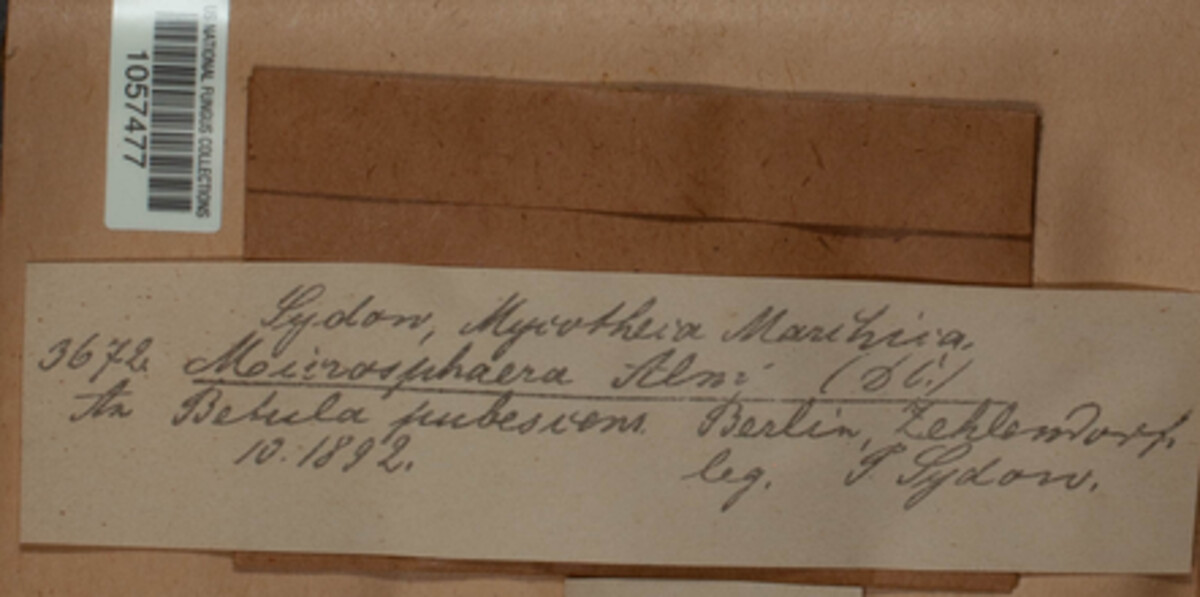 US NATIONAL FUNGUS COLLECTIONS
1057477
Sydow, Mycotheca Marchica.
3672. Microsphaera Alni (DC.)
An Betula pubescens. Berlin, Zehlendorf.
10.1892. leg. P. Sydow.